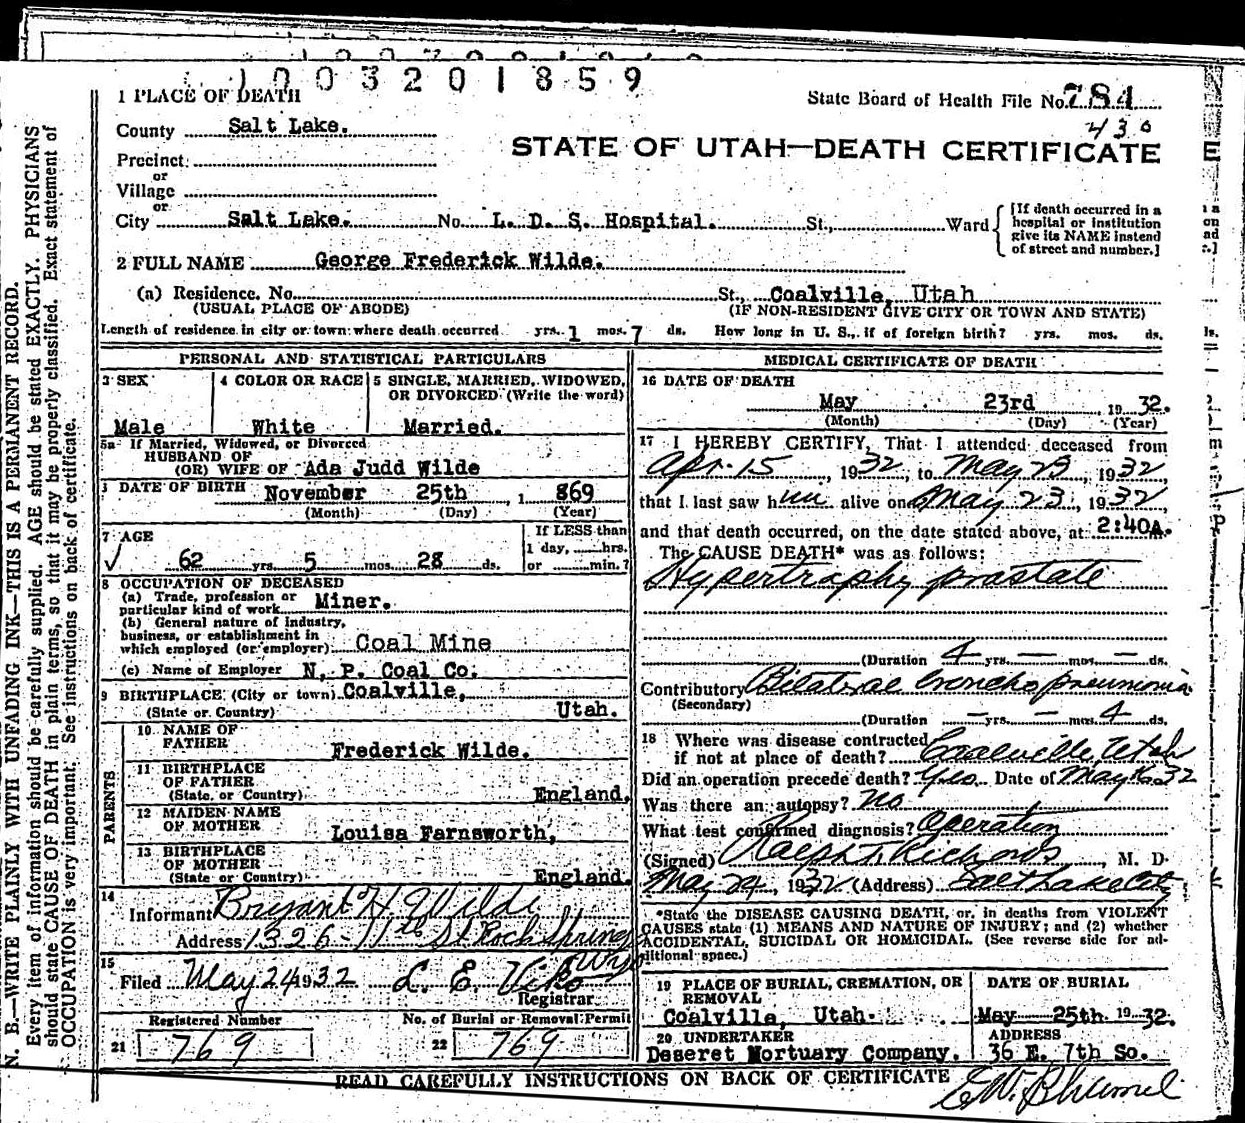 1003201859
1 PLACE OF DEATH
State Board of Health File No. 784
430
County Salt Lake.
STATE OF UTAH—DEATH CERTIFICATE
Precinct
or
Village
or
City Salt Lake. No. L. D. S. Hospital. St., Ward
[If death occurred in a
hospital or institution
give its NAME instead
of street and number.]
2 FULL NAME George Frederick Wilde.
(a) Residence. No. St., Coalville, Utah
(USUAL PLACE OF ABODE) (IF NON-RESIDENT GIVE CITY OR TOWN AND STATE)
Length of residence in city or town where death occurred yrs. 1 mos. 7 ds. How long in U. S., if of foreign birth? yrs. mos. ds.
PERSONAL AND STATISTICAL PARTICULARS
3 SEX 4 COLOR OR RACE 5 SINGLE, MARRIED, WIDOWED,
OR DIVORCED (Write the word)
Male White Married.
5a If Married, Widowed, or Divorced
HUSBAND OF
(OR) WIFE OF Ada Judd Wilde
DATE OF BIRTH November 25th 1 869
(Month) (Day) (Year)
7 AGE If LESS than
1 day, hrs.
62 yrs. 5 mos. 28 ds. or min.?
8 OCCUPATION OF DECEASED
(a) Trade, profession or
particular kind of work Miner.
(b) General nature of industry,
business, or establishment in
which employed (or employer) Coal Mine
(c) Name of Employer N. P. Coal Co.
9 BIRTHPLACE (City or town) Coalville,
(State or Country) Utah.
PARENTS
10 NAME OF
FATHER Frederick Wilde.
11 BIRTHPLACE
OF FATHER
(State or Country) England.
12 MAIDEN NAME
OF MOTHER Louisa Farnsworth,
13 BIRTHPLACE
OF MOTHER
(State or Country) England.
14
Informant Bryant H. Wilde
Address 1326-11th St Rock Springs
Wyo
15
Filed May 24 1932 L. E. Viko
Registrar
Registered Number No. of Burial or Removal Permit
21 769 22 769
MEDICAL CERTIFICATE OF DEATH
16 DATE OF DEATH
May 23rd 1932.
(Month) (Day) (Year)
17 I HEREBY CERTIFY, That I attended deceased from
Apr. 15, 1932, to May 23, 1932,
that I last saw him alive on May 23, 1932,
and that death occurred, on the date stated above, at 2:40A.
The CAUSE DEATH* was as follows:
Hypertrophy prostate
(Duration 4 yrs. — mos. — ds.
Contributory Bilateral bronchopneumonia
(Secondary)
(Duration — yrs. — mos. 4 ds.
18 Where was disease contracted
if not at place of death? Coalville, Utah
Did an operation precede death? Yes. Date of May 16 32
Was there an autopsy? No
What test confirmed diagnosis? Operation
(Signed) Ralph T. Richards, M. D.
May 24, 1932 (Address) Salt Lake City
*State the DISEASE CAUSING DEATH, or, in deaths from VIOLENT
CAUSES state (1) MEANS AND NATURE OF INJURY; and (2) whether
ACCIDENTAL, SUICIDAL OR HOMICIDAL. (See reverse side for ad-
ditional space.)
19 PLACE OF BURIAL, CREMATION, OR
REMOVAL
Coalville, Utah.
DATE OF BURIAL
May 25th 1932.
20 UNDERTAKER
Deseret Mortuary Company.
ADDRESS
36 E. 7th So.
READ CAREFULLY INSTRUCTIONS ON BACK OF CERTIFICATE
N. B.—WRITE PLAINLY WITH UNFADING INK—THIS IS A PERMANENT RECORD.
Every item of information should be carefully supplied. AGE should be stated EXACTLY. PHYSICIANS
should state CAUSE OF DEATH in plain terms, so that it may be properly classified. Exact statement of
OCCUPATION is very important. See instructions on back of certificate.